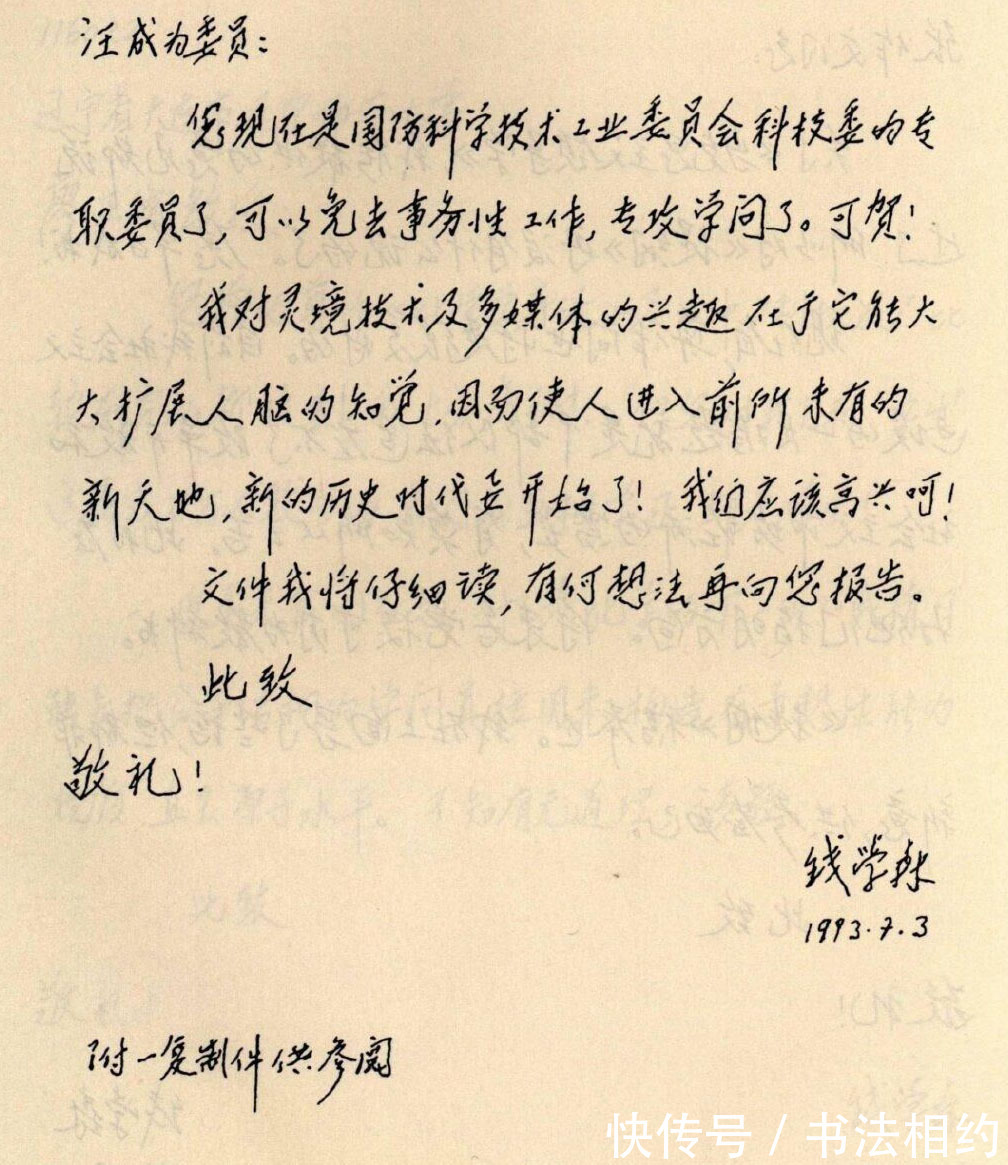 汪成为委员：
您现在是国防科学技术工业委员会科技委的专
职委员了，可以免去事务性工作，专攻学问了。可贺！
我对灵境技术及多媒体的兴趣在于它能大
大扩展人脑的知觉，因而使人进入前所未有的
新天地，新的历史时代要开始了！我们应该高兴呵！
文件我将仔细读，有何想法再向您报告。
此致
敬礼！
钱学森
1993.7.3
附一复制件供参阅
快传号 / 书法相约